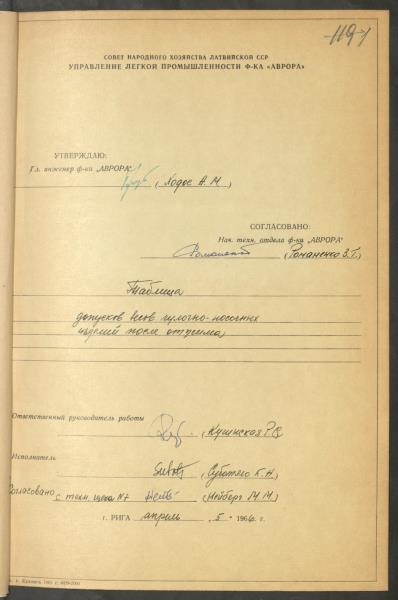 119
СОВЕТ НАРОДНОГО ХОЗЯЙСТВА ЛАТВИЙСКОЙ ССР
УПРАВЛЕНИЕ ЛЕГКОЙ ПРОМЫШЛЕННОСТИ Ф-КА «АВРОРА»
УТВЕРЖДАЮ:
Гл. инженер ф-ки „АВРОРА"
( Ходос А. М )
СОГЛАСОВАНО:
Нач. техн. отдела ф-ки „АВРОРА"
(Романенко З.Г.)
Таблица
допусков весов чулочно-носочных
изделий после отжима
Ответственный руководитель работы
( Кушнская Р.
Исполнитель
( Суботко К. Н )
Согласовано с техн. цеха №7 (Нейберг М. М )
г. РИГА апрель 5 1966 г.